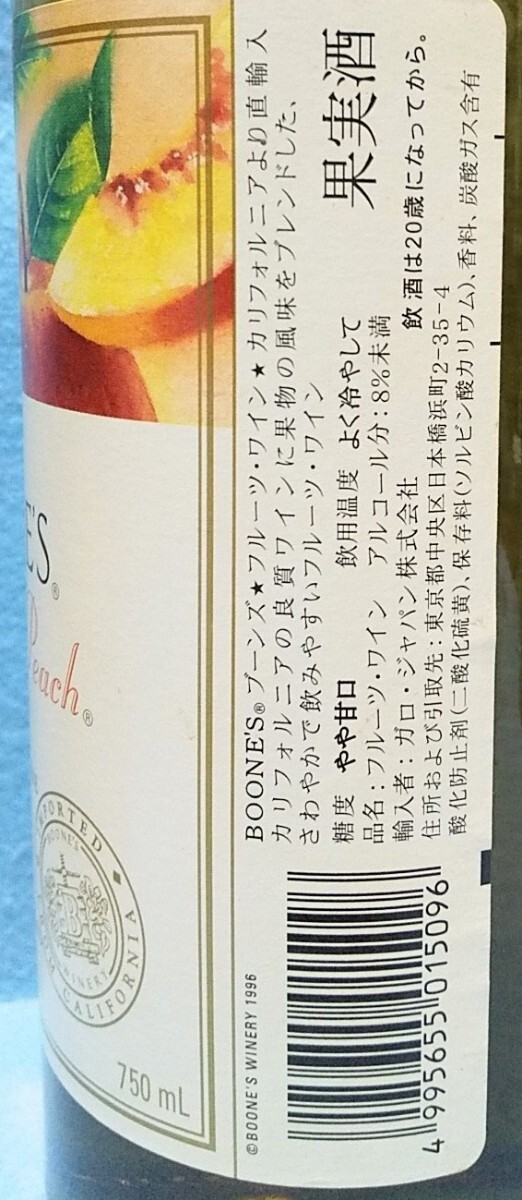 E'S®
Peach®
IMPORTED
BOONE'S
B
WINERY
CALIFORNIA
750 mL
BOONE'S®ブーンズ★フルーツ・ワイン★カリフォルニアより直輸入
カリフォルニアの良質ワインに果物の風味をブレンドした、
さわやかで飲みやすいフルーツ・ワイン
果実酒
糖度 やや甘口 飲用温度 よく冷やして
品名:フルーツ・ワイン アルコール分:8%未満
飲酒は20歳になってから。
輸入者:ガロ・ジャパン株式会社
住所および引取先:東京都中央区日本橋浜町2-35-4
酸化防止剤(二酸化硫黄)、保存料(ソルビン酸カリウム)、香料、炭酸ガス含有
©BOONE'S WINERY 1996
4 995655 015096